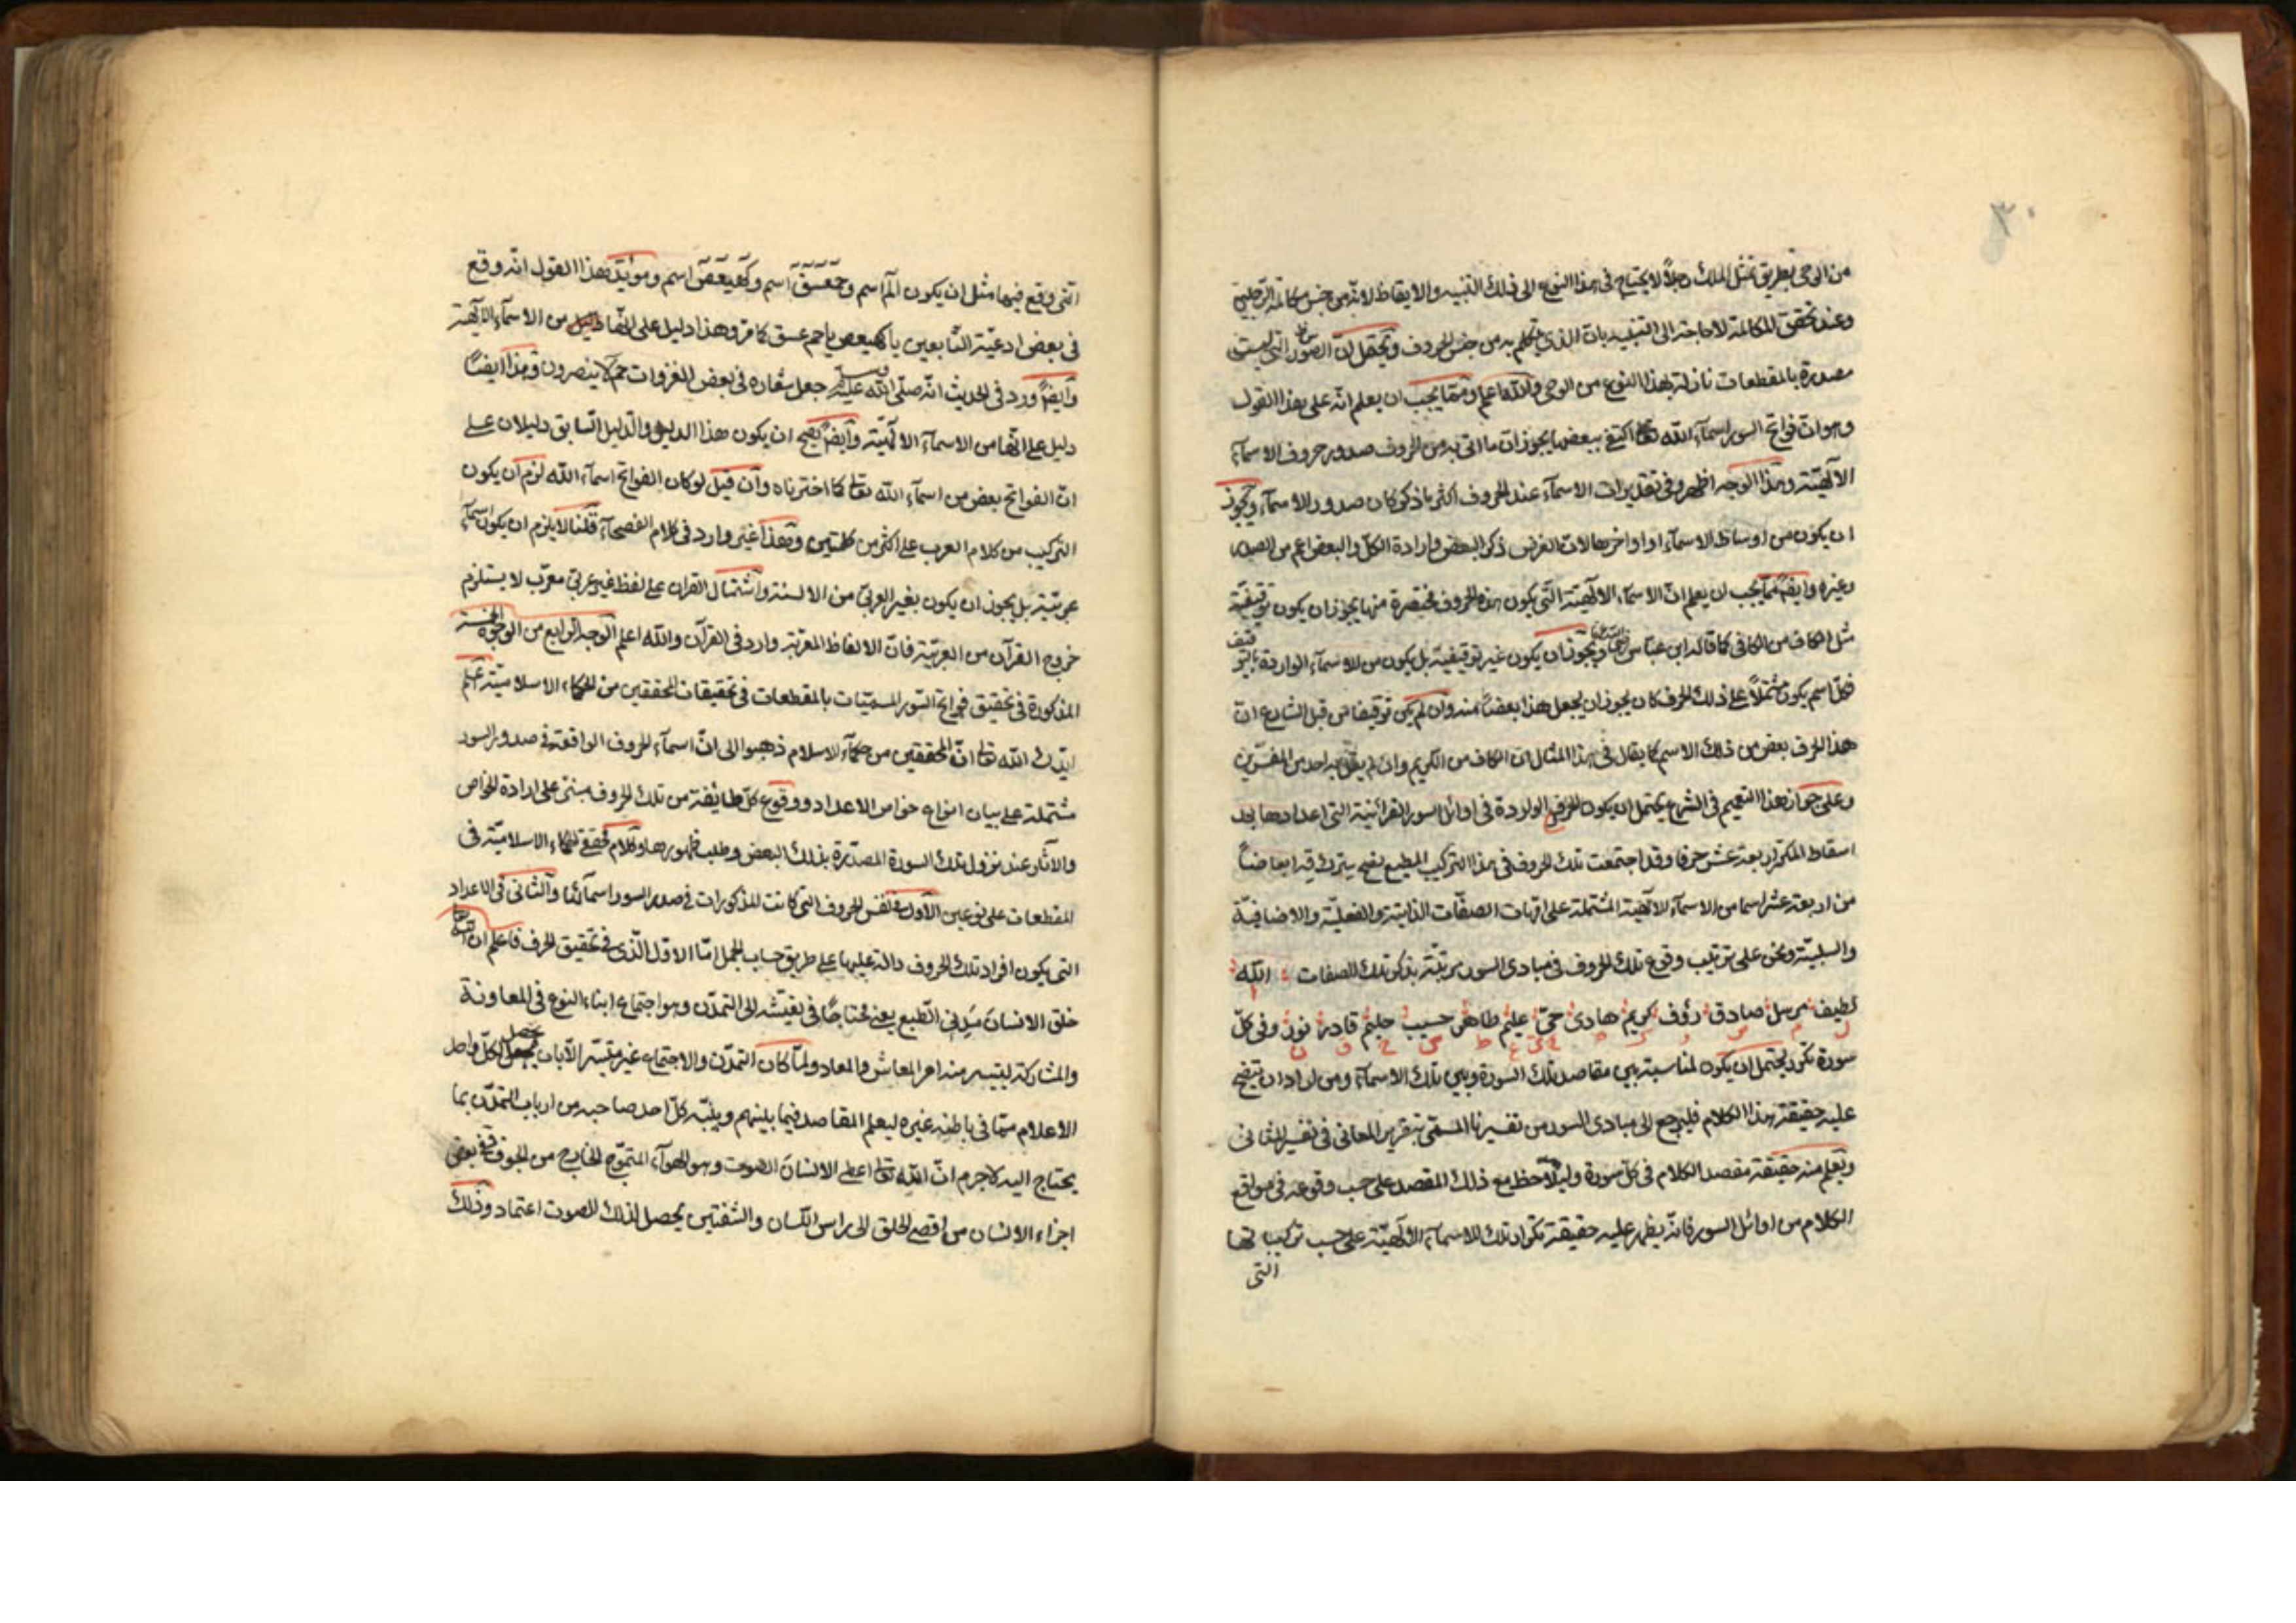 ٣٠
من الوحى بطريق تمثل الملك رجلا لا يحتاج فى هذا النوع الى ذلك التنبيه والايقاظ لانه من جنس مكالمة الرجلين
وعند تحقق المكالمة لا حاجة الى التنبيه بان الذى يتكلم به من جنس الحروف ويحتمل ان السور التى ليست
مصدرة بالمقطعات نازلة بهذا النوع من الوحى والله اعلم ومما يجب ان يعلم انه على هذا القول
وهو ان فواتح السور اسماء الله تعا اكتفى ببعضها يجوز ان ما اتى به من الحروف صدور حروف الاسماء
الالهية وهذا الوجه اظهر وفى تقديرات الاسماء عند الحروف اكثر ما ذكر كان صدور الاسماء ويجوز
ان يكون من اوساط الاسماء او اواخرها لان الغرض ذكر البعض وارادة الكل والبعض اعم من الصدر
وغيره وايضا مما يجب ان يعلم ان الاسماء الالهية التى يكون هذه الحروف مختصرة منها يجوز ان يكون توقيفية
مثل الكاف من الكافى كما قاله ابن عباس ويجوز ان يكون غير توقيفية بل يكون من الاسماء الواردة بالتوقيف
فكل اسم يكون مشتملا على ذلك الحرف كان يجوز ان يجعل هذا بعضا منه وان لم يكن توقيفا من قبل الشارع ان
هذا الحرف بعض من ذلك الاسم كما يقال فى هذا المثال ان الكاف من الكريم وان لم يقل به احد من المفسرين
وعلى جواز هذا التعميم فى الشرع يحتمل ان يكون الحروف الواردة فى اوائل السور القرآنية التى اعدادها بعد
اسقاط المكرر اربعة عشر حرفا وقد اجتمعت تلك الحروف فى هذا التركيب
من اربعة عشر اسما من الاسماء الالهية المشتملة على امهات الصفات الذاتية والفعلية والاضافية
والسلبية ونحن على ترتيب وقوع تلك الحروف فى مبادى السور مرتبة بذكر تلك الصفات الله
لطيف مرسل صادق رؤف كريم هادى حى عليم طاهر حسيب حليم قادر نور وفى كل
سورة تكرر يحتمل ان يكون لمناسبة بين مقاصد تلك السورة وبين تلك الاسماء ومن اراد ان يتضح
عليه حقيقة هذا الكلام فليرجع الى مبادى السور من تفسيرنا المسمى بتقرير المعانى فى تفسير المثانى
ويعلم منه حقيقة مقصد الكلام فى كل سورة وليلاحظ مع ذلك المقصد على حسب وقوعه فى مواقع
الكلام من اوائل السور فانه يظهر عليه حقيقة تكرار تلك الاسماء الالهية على حسب تركيباتها
التى
التى وقع فيها مثل ان يكون الم اسم وحمعسق اسم وكهيعص اسم ومويد هذا القول انه وقع
فى بعض ادعية التابعين يا كهيعص يا حم عسق كما مر وهذا دليل على انها من الاسماء الالهية
وايضا ورد فى الحديث انه صلى الله عليه وسلم جعل شعاره فى بعض الغزوات حم لا ينصرون وهذا ايضا
دليل على انها من الاسماء الالهية وايضا يصح ان يكون هذا الدليل والدليل السابق دليلان على
ان الفواتح بعض من اسماء الله تعالى كما اخترناه وان قيل لو كان الفواتح اسماء الله لزم ان يكون
التركيب من كلام العرب على اكثر من كلمتين وهذا غير وارد فى كلام الفصحاء قلنا لا يلزم ان يكون اسماء
عربية بل يجوز ان يكون بغير العربى من الالسنة واشتمال القران على لفظ غير عربى معرب لا يستلزم
خروج القرآن من العربية فان الالفاظ المعربة وارد فى القرآن والله اعلم الوجه الرابع من الوجوه الخمسة
المذكورة فى تحقيق فواتح السور المسميات بالمقطعات فى تحقيقات المحققين من الحكماء الاسلامية اعلم
ايدك الله تعا ان المحققين من حكماء الاسلام ذهبوا الى ان اسماء الحروف الواقعة فى صدور السور
مشتملة على بيان انواع خواص الاعداد ووقوع كل طائفة من تلك الحروف مبنى على ارادة الخواص
والآثار عند نزول تلك السورة المصدرة بذلك البعض وطلب ظهورها وكلام محققى الحكماء الاسلامية فى
المقطعات على نوعين الاول فى نفس الحروف التى كانت المذكورات فى صدر السور اسمائها والثانى فى الاعداد
التى يكون افراد تلك الحروف دالة عليها على طريق حساب الجمل اما الاول الذى فى تحقيق الحرف فاعلم ان الله تعا
خلق الانسان مدنى الطبع يعنى محتاجا فى تعيشه الى التمدن وهو اجتماع ابناء النوع فى المعاونة
والمشاركة ليتيسر منه امر المعاش والمعاد ولما كان التمدن والاجتماع غير متيسر الا بان يحصل لكل واحد
الاعلام مما فى باطنه غيره ليعلم المقاصد فيما بينهم وينبه كل احد صاحبه من ارباب التمدن بما
يحتاج اليه لا جرم ان الله تعا اعطى الانسان الصوت وهو الهواء المتموج الخارج من الجوف ففى بعض
اجزاء الانسان من اقصى الحلق الى راس اللسان والشفتين يحصل لذلك الصوت اعتماد وذلك